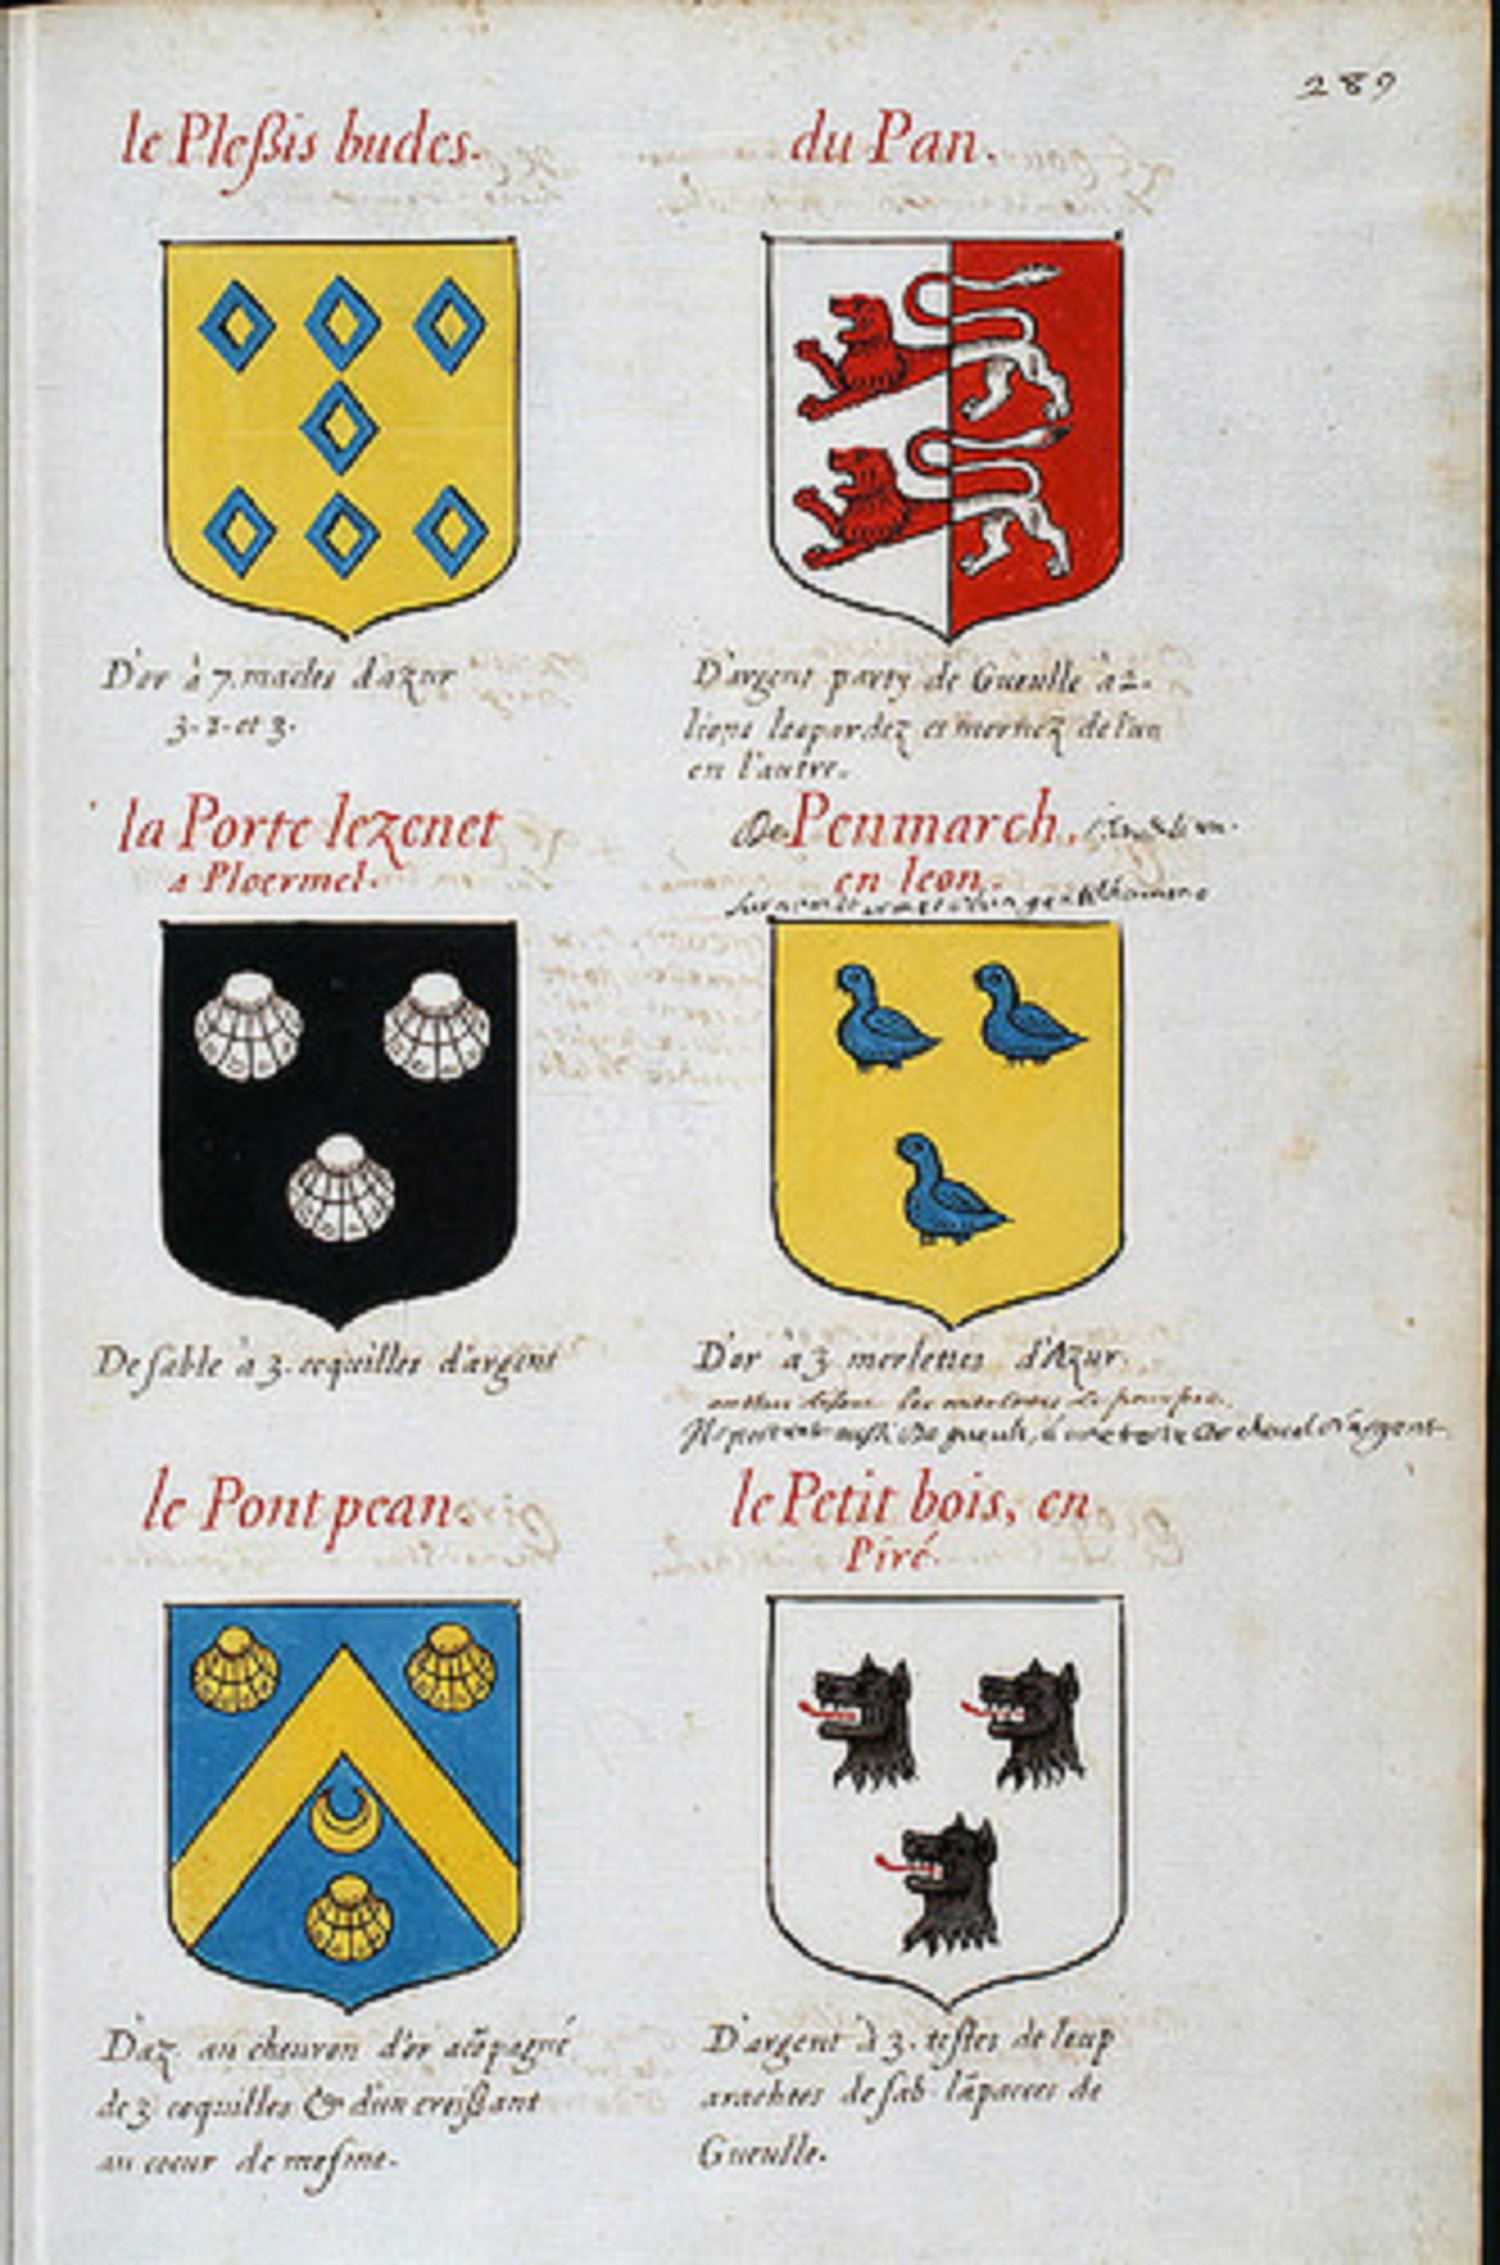 289
le Pleßis budes.
D'or à 7. macles d'azur
3. 1. et 3.
du Pan.
D'argent party de Gueulle à 2.
lions leopardez et mornez de l'un
en l'autre.
la Porte lezenet
a Ploermel.
De sable à 3. coquilles d'argent
De Penmarch,
en leon.
gentilhomme
D'or à 3 merlettes d'Azur.
les merlettes
Ils portent aussi de gueule, à une teste de cheval d'argent
le Pont pean.
D'az. au cheuron d'or acõpagné
de 3 coquilles & d'un croißant
au cœur de mesme.
le Petit bois, en
Piré.
D'argent à 3. testes de loup
arachees de sab. lãpacees de
Gueulle.